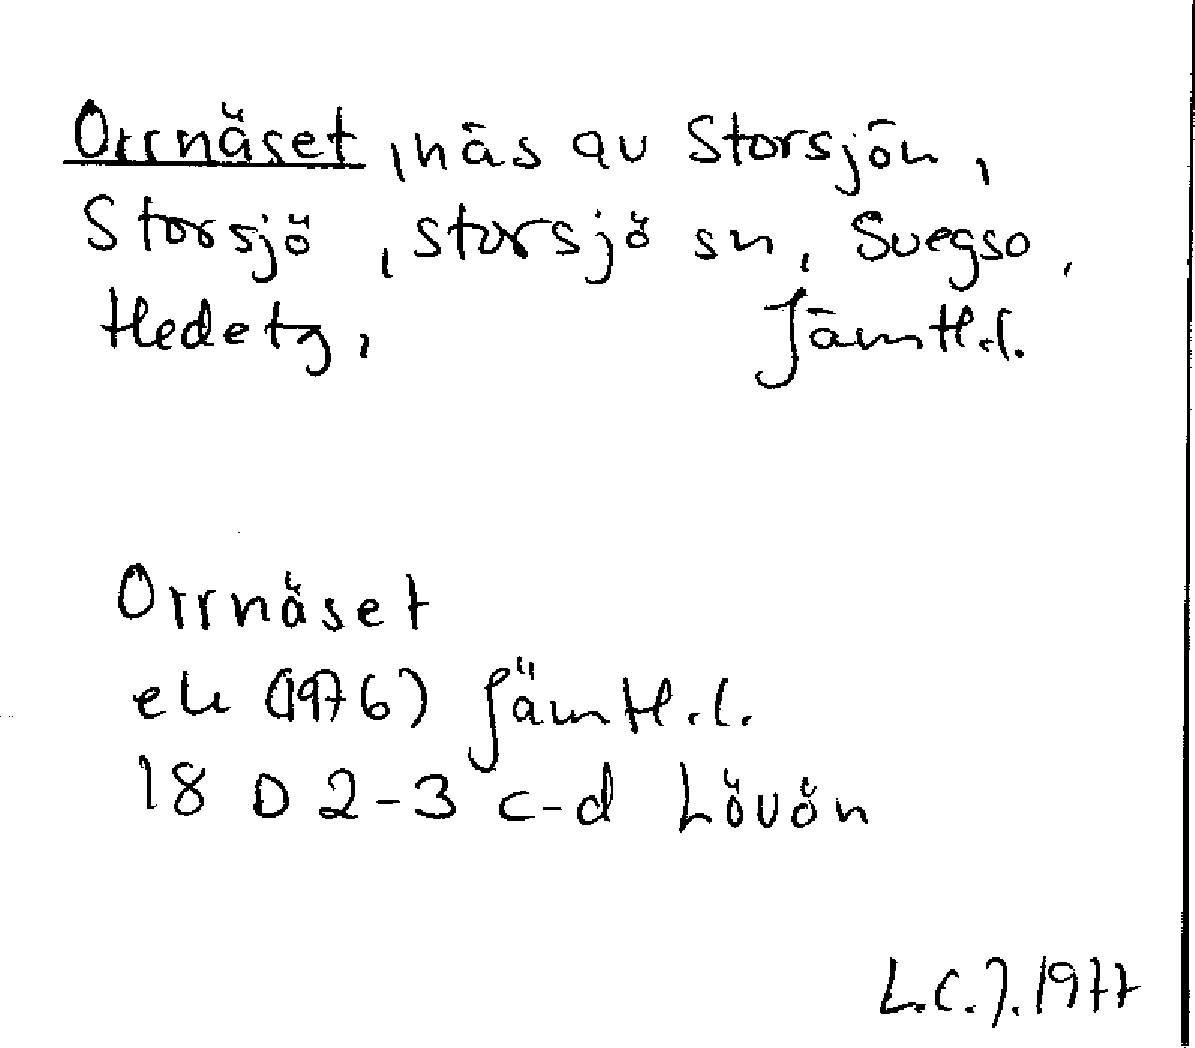 Orrnäset, näs av Storsjön,
Storsjö, Storsjö sn, Svegs o,
Hede tg, Jämtl.l.
Orrnäset
ek (1976) Jämtl.l.
18 D 2-3 c-d Lövön
L.C.J. 1977